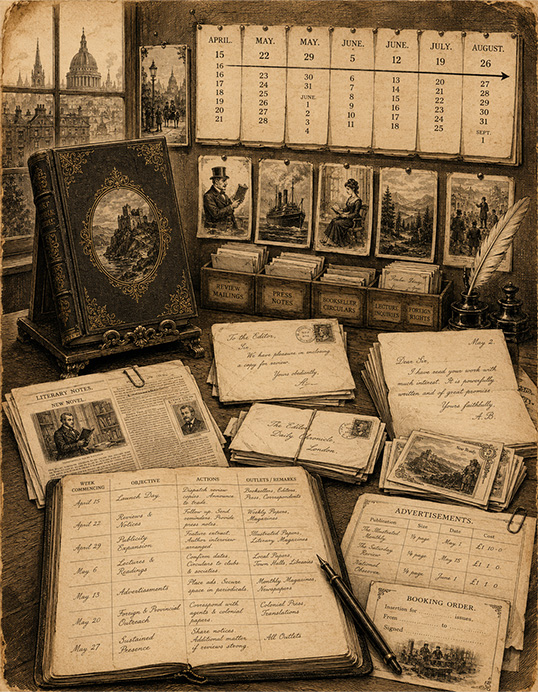 APRIL.
MAY.
MAY.
JUNE.
JUNE.
JULY.
AUGUST.
15
22
29
5
12
19
26
16
16
23
30
6
13
20
27
17
24
31
7
14
21
28
18
25
JUNE.
8
15
22
29
19
26
1
9
16
23
30
20
27
2
10
17
24
31
21
28
3
11
18
25
SEPT.
4
1
REVIEW
MAILINGS
PRESS
NOTES
BOOKSELLER
CIRCULARS
LECTURE
INQUIRIES
FOREIGN
RIGHTS
To the Editor,
Sir,
We have pleasure in enclosing
a copy for review.
Yours obediently,
May 2.
Dear Sir,
I have read your work with
much interest. It is powerfully
written and of great promise.
Yours faithfully,
A.B.
LITERARY NOTES.
NEW NOVEL.
The Editor
Daily Chronicle,
London
WEEK
COMMENCING
OBJECTIVE
ACTIONS
OUTLETS / REMARKS
April 15
Launch Day
Dispatch review
copies. Announce
to trade.
Booksellers, Editors
Press, Correspondents
April 22
Reviews &
Notices
Follow up. Send
reminders. Provide
press notes.
Weekly Papers,
Magazines
April 29
Publicity
Expansion
Feature extract.
Author interview
arranged.
Illustrated Papers,
Literary Magazines
May 6
Lectures &
Readings
Confirm dates.
Circulars to clubs
& societies.
Local Papers
Town Halls, Libraries
May 13
Advertisements
Place ads. Secure
space in periodicals.
Monthly Magazines,
Newspapers
May 20
Foreign & Provincial
Outreach
Correspond with
agents & colonial
papers.
Colonial Press,
Translations
May 27
Sustained
Presence
Share notices.
Additional matter
of reviews strong.
All Outlets
ADVERTISEMENTS.
Publication
Size
Date
Cost
The Illustrated
Monthly
½ page
May 1
£1 10 0
The Saturday
Review
¼ page
May 15
£1 1 0
National
½ page
June 1
£1 1 0
BOOKING ORDER.
Insertion for
issues,
From
to
Signed